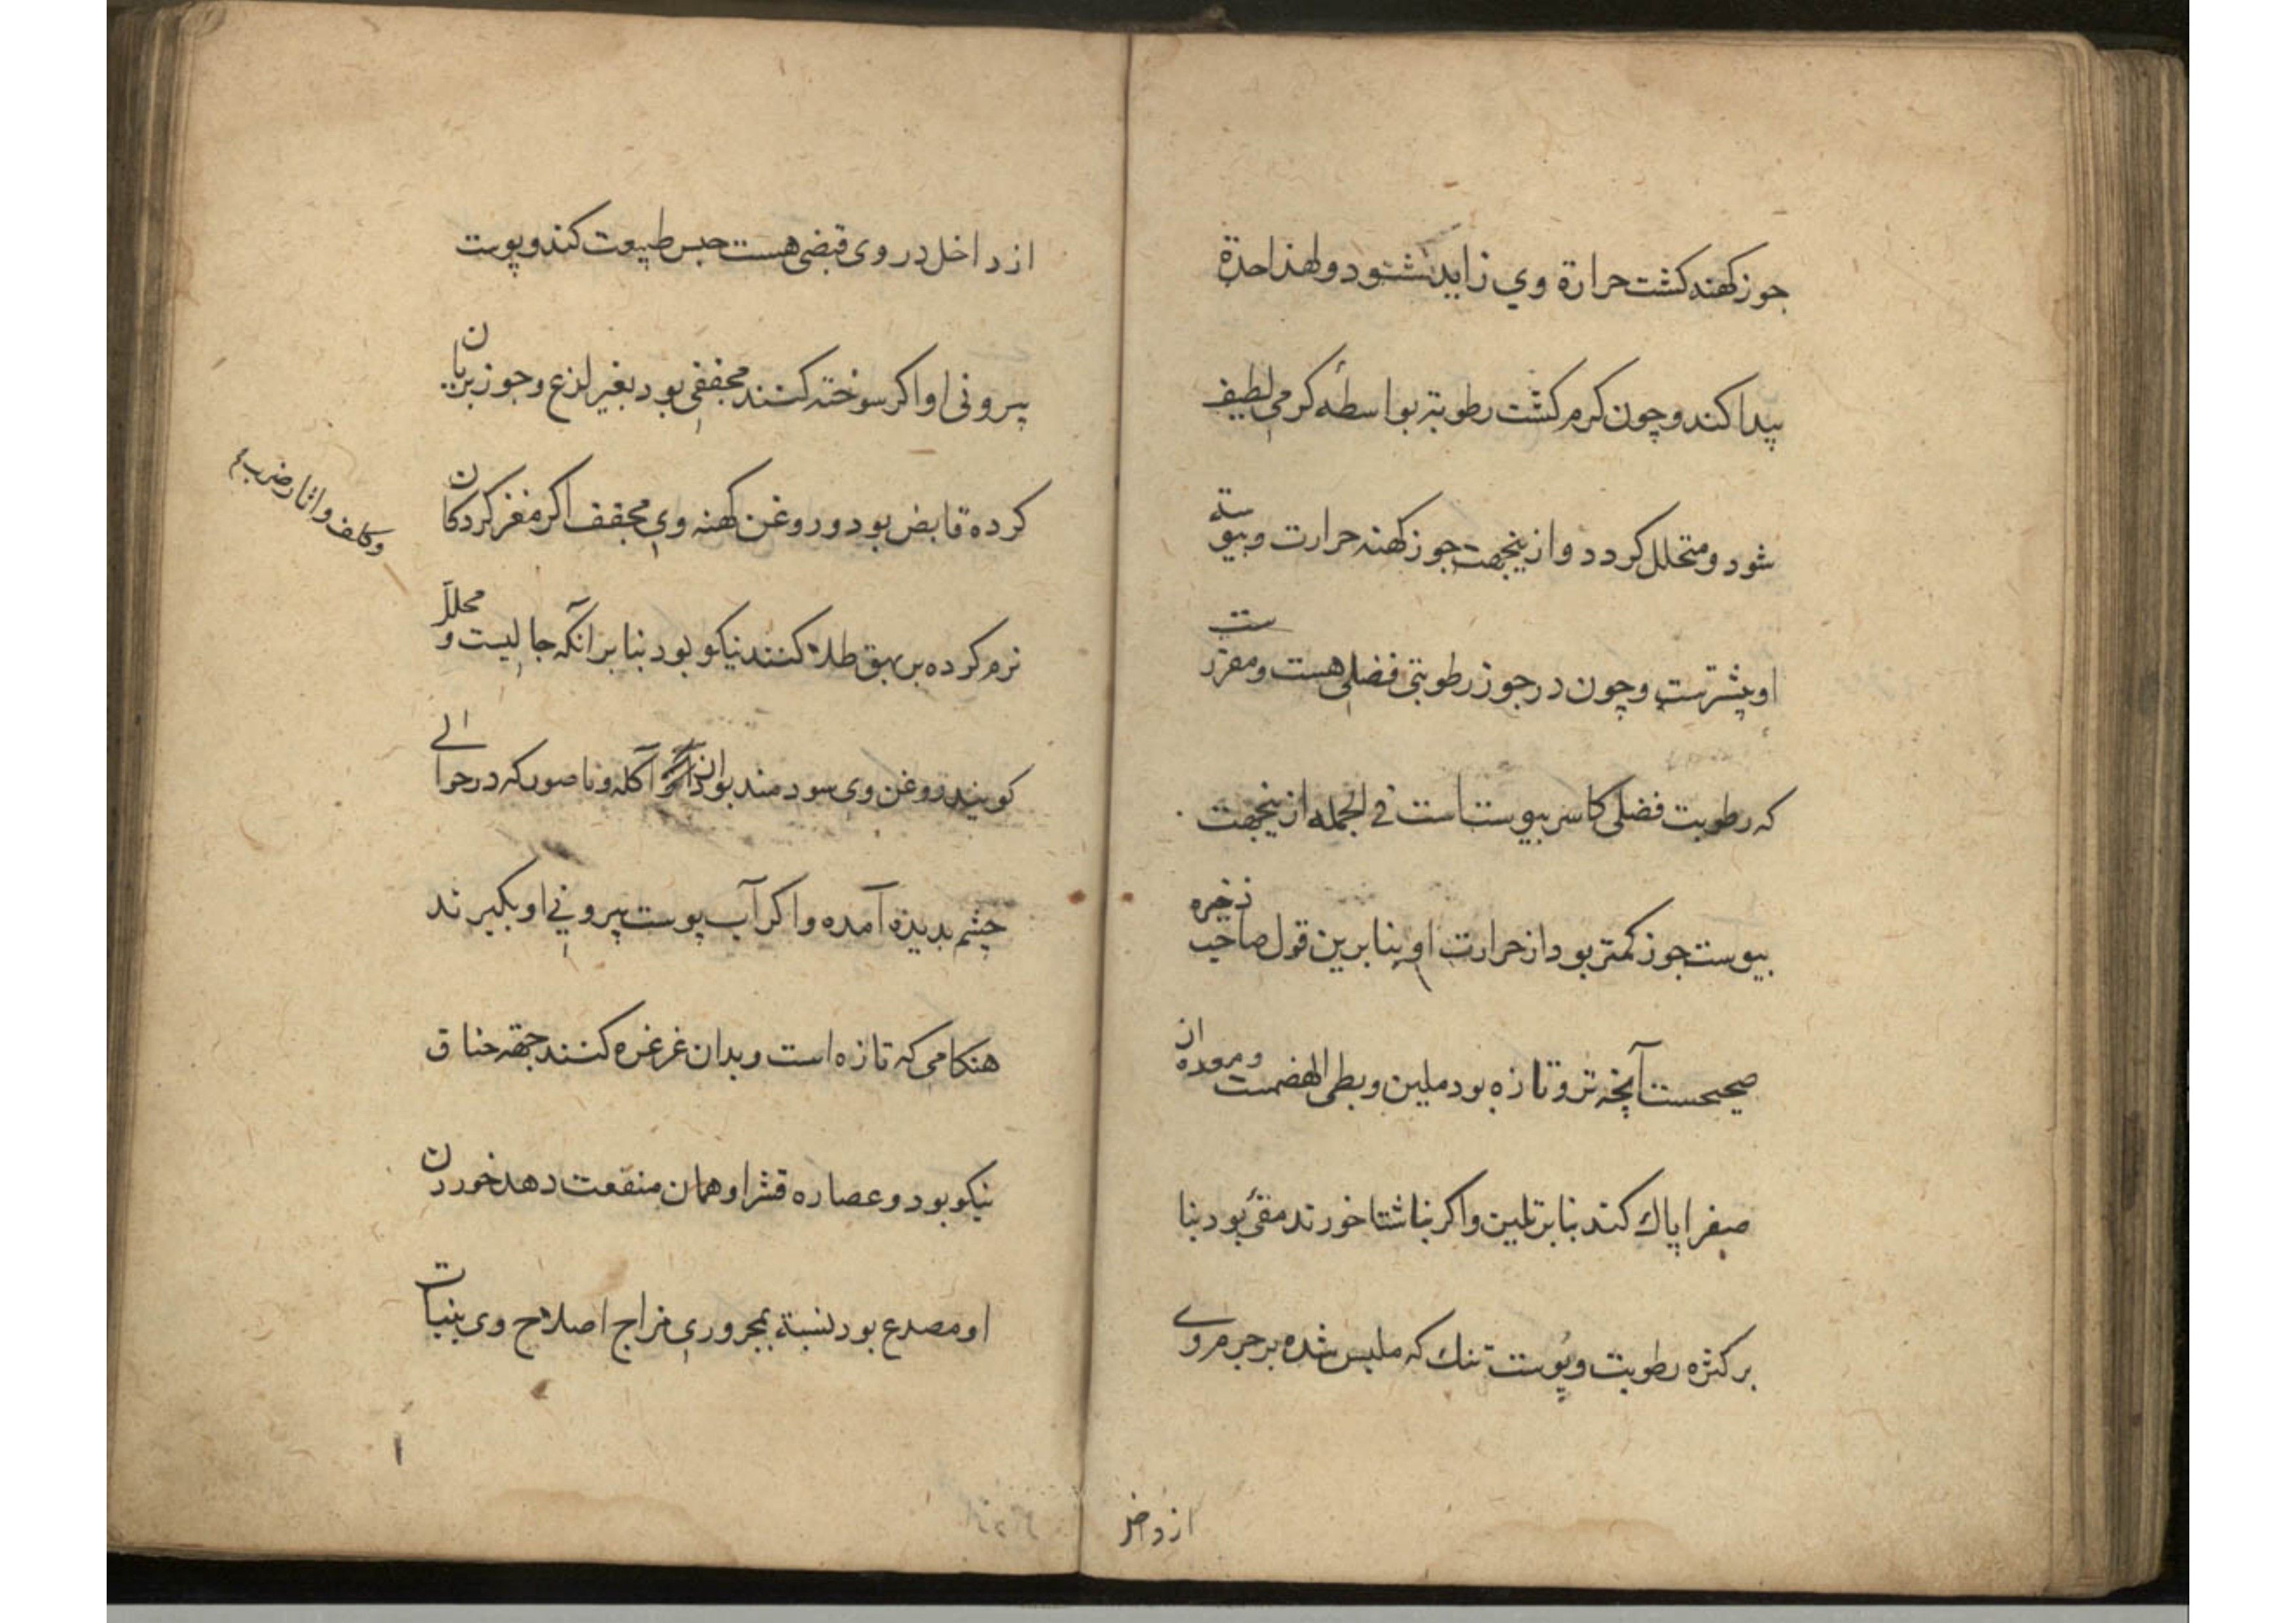 جوز کهنه کشت حرارة وي زاید شود و لهذا حدة
پیدا کند و چون کرم کشت رطوبته بواسطه کرمی لطیف
شود و متحلل کردد و ازینجهت جوز کهنه حرارت و یبوسة
او بیشترست و چون در جوز رطوبتی فضلی هست و مقررست
که رطوبت فضلی کاسر یبوست است في الجمله ازینجهت
یبوست جوز کمتر بود از حرارت او بنا برین قول صاحب ذخیره
صحیحست آنچه تر و تازه بود ملین و بطی الهضمست و روده از
صفرا پاك کند بنا بر تلیین و اکر بناشتا خورند مقئ بود بنا
بر کثره رطوبت و پوست تنك که ملبس شده بر جرم وے
از داخل
از داخل در وی قبضی هست حبس طبیعت کند و پوست
بیرونی او اکر سوخته کنند مجففی بود بغیر لذع و جوز بریان
کرده قابض بود و روغن کهنه وی مجفف اکر مغز کردکان
نرم کرده بر بهق طلا کنند نیکو بود بنا بر آنکه جالیست و محلل
وکلف و اثار ضرب
کویند روغن وی سودمند بود آکله و ناصور که در حوالے
چشم بدیده آمده و اکر آب پوست بیرونی او بکیرند
هنکامی که تازه است و بدان غرغره کنند جهة خناق
نیکو بود و عصاره قشر او همان منفعت دهد خوردن
او مصدع بود نسبة بمحروری مزاج اصلاح وی بنبات